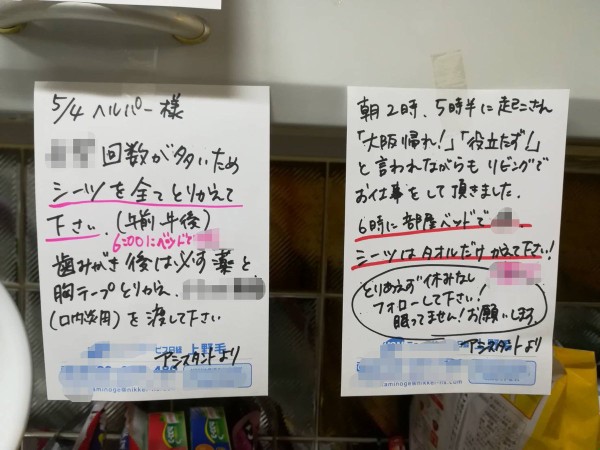 5/4 ヘルパー様
回数が多いため
シーツを全てとりかえて
下さい.(午前.午後)
6:00にベッドで
歯みがき後は必ず薬と
胸テープとりかえ.
(口内炎用)を渡して下さい
上野毛
アシスタントより
aminoge@nikkei-hs.com
朝2時、5時半に起こされ
「大阪帰れ!」「役立たず!」
と言われながらも リビングで
お仕事をして頂きました.
6時に部屋ベッドで
シーツはタオルだけかえて下さい!
とりあえず休みなし
フォローして下さい!
眠ってません!お願いします.
アシスタントより